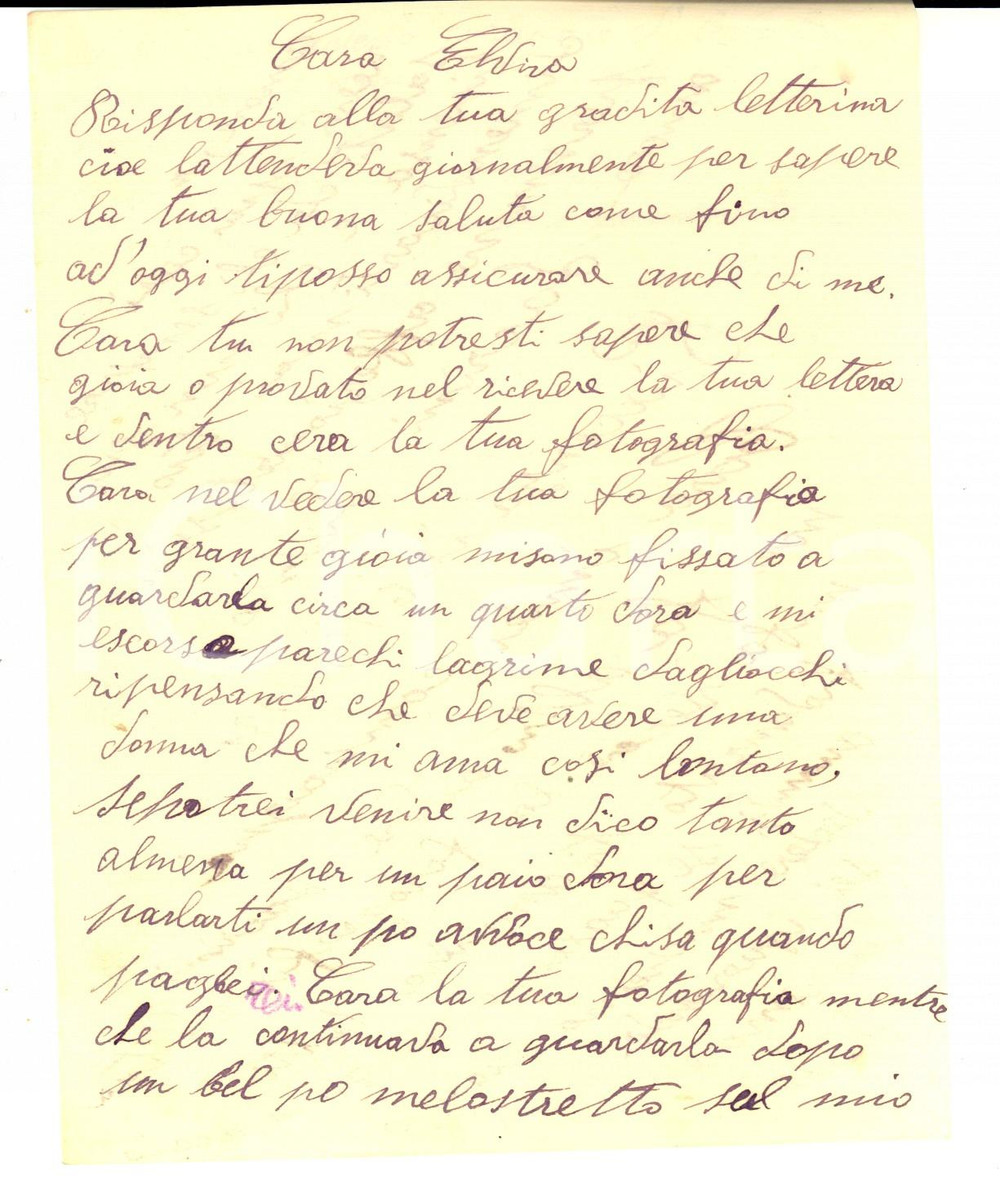 Cara Elvira
Risponda alla tua gradita letterina
cioe lattendeva giornalmente per sapere
la tua buona saluta come fino
ad'oggi tiposso assicurare anche di me.
Cara tu non potresti sapere che
gioia o provato nel ricevere la tua lettera
e dentro cera la tua fotografia.
Cara nel vedere la tua fotografia
per grante gioia misono fissato a
guardarla circa un quarto dora e mi
escorso parechi lagrime dagliocchi
ripensando che deve avere una
donna che mi ama cosi lontano,
sepotrei venire non dico tanto
almeno per un paio dora per
parlarti un po avvoce chisa quando
paghe Cara la tua fotografia mentre
che la continuava a guardarla dopo
un bel po melostretto sul mio